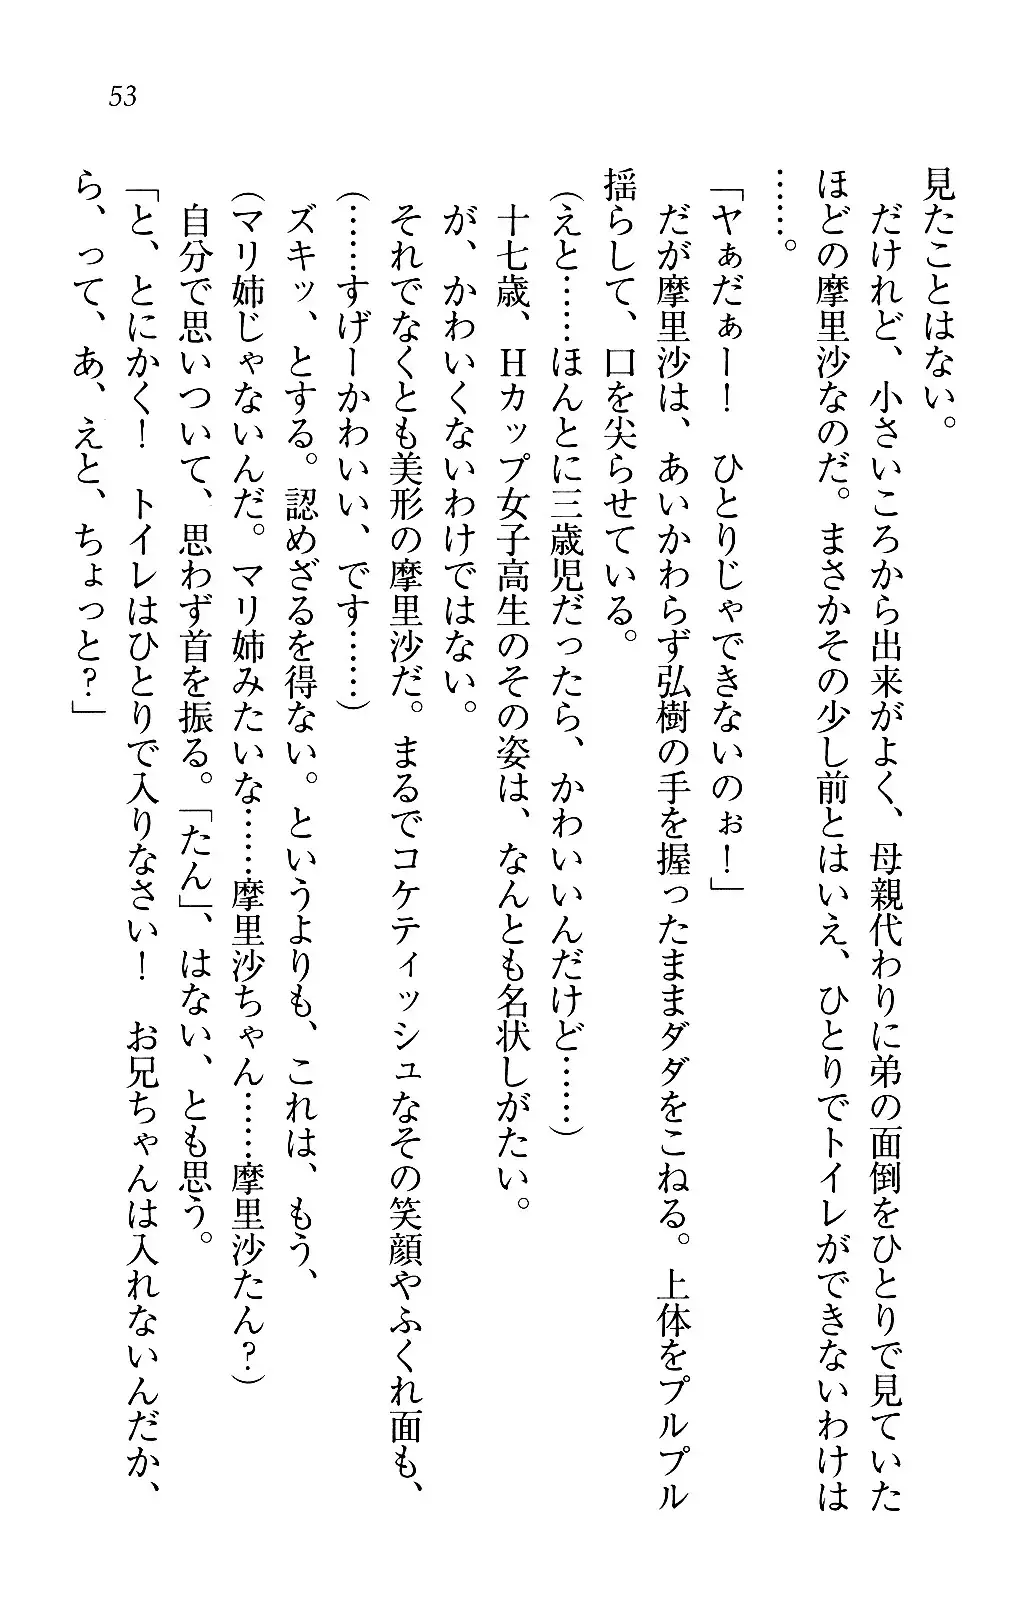 53
見たことはない。
だけれど、小さいころから出来がよく、母親代わりに弟の面倒をひとりで見ていた
ほどの摩里沙なのだ。まさかその少し前とはいえ、ひとりでトイレができないわけは
……。
「ヤぁだぁー！　ひとりじゃできないのぉ！」
だが摩里沙は、あいかわらず弘樹の手を握ったままダダをこねる。上体をプルプル
揺らして、口を尖らせている。
（えと……ほんとに三歳児だったら、かわいいんだけど……）
十七歳、Hカップ女子高生のその姿は、なんとも名状しがたい。
が、かわいくないわけではない。
それでなくとも美形の摩里沙だ。まるでコケティッシュなその笑顔やふくれ面も、
（……すげーかわいい、です……）
ズキッ、とする。認めざるを得ない。というよりも、これは、もう、
（マリ姉じゃないんだ。マリ姉みたいな……摩里沙ちゃん……摩里沙たん？）
自分で思いついて、思わず首を振る。「たん」、はない、とも思う。
「と、とにかく！　トイレはひとりで入りなさい！　お兄ちゃんは入れないんだか、
ら、って、あ、えと、ちょっと？」